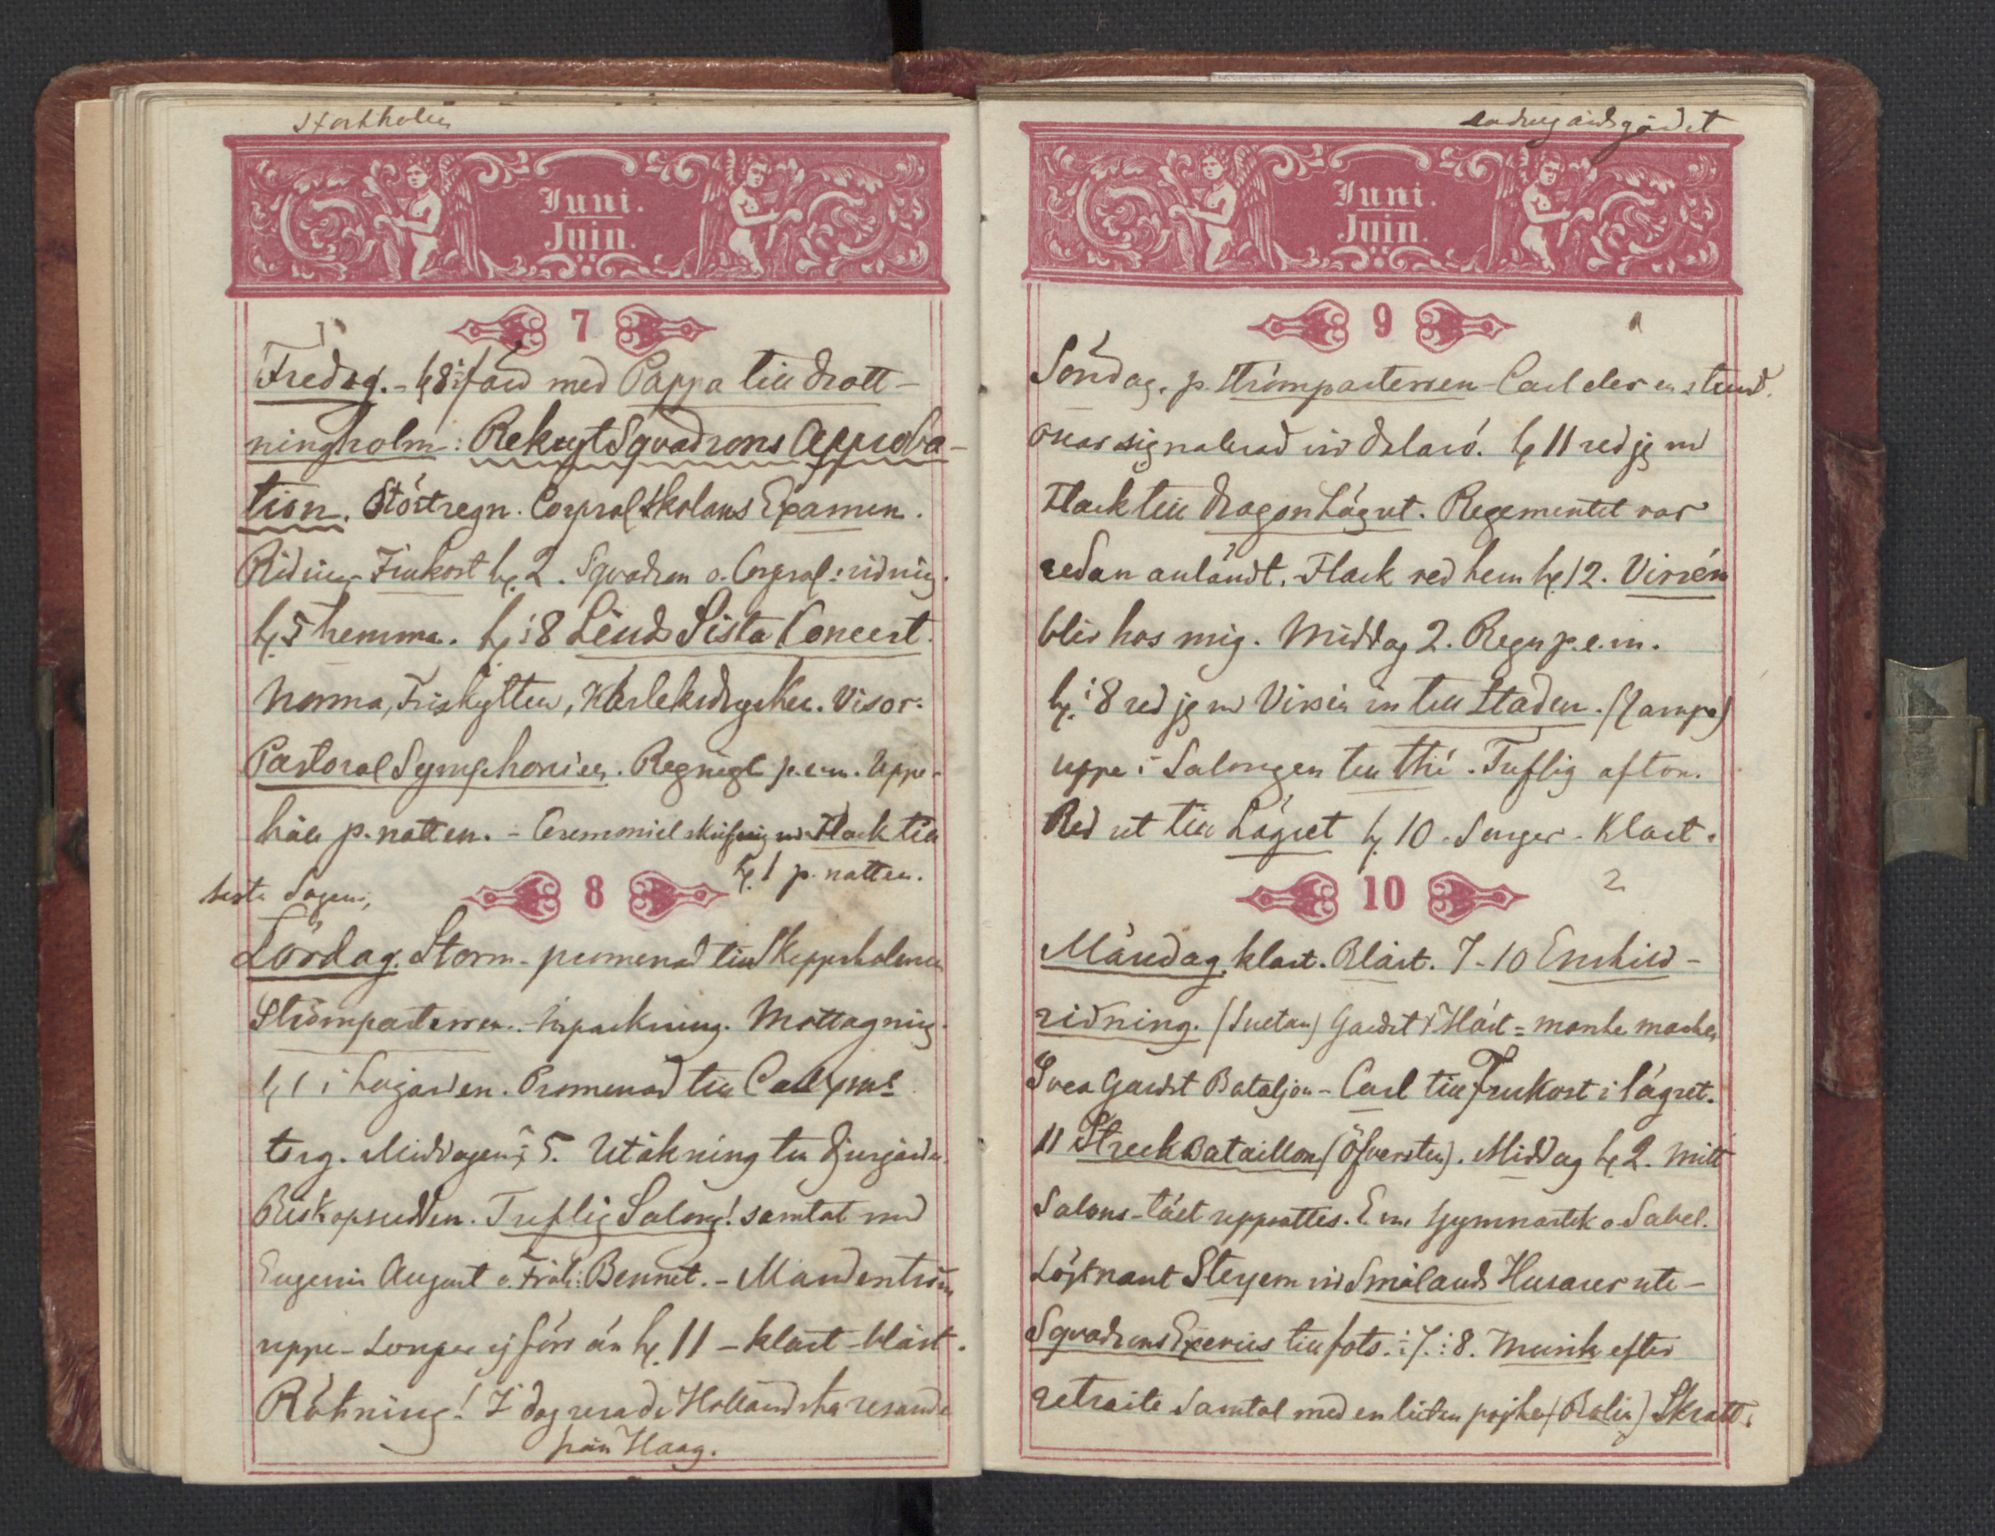 Stockholm
Juni.
Juin.
7
Fredag. - kl 8 for med Pappa till Drott-
ningholm: Rekryt Sqvadrons Approba-
tion. Störtregn. Corpralskolans Examen.
Ridning Frukost kl. 2. Sqvadron o. Corpral: ridning.
kl. 5 hemma. kl. : 8 Linds Sista Concert.
Norma, Friskytten, Kärleksdrycken. Visor.
Pastoral Symphonien. Regnigt p.e.m. Uppe-
håll p. natten. - Ceremoniel md Flack till
kl. 1 p. natten.
sista dagen,
8
Lördag. Storm - promenad till Skeppsholmen
Strömparterren. - Inpackning. Mottagning
kl 1 i Logården. Promenad till Carl XIIIs
torg. Middagen kl 5. Utåkning till Djurgården.
Biskopsudden. Treflig Salong! samtal med
Eugenie August o. Frök: Bennet. - Manderström
uppe - Souper ej förr än kl. 11 - klart - blåst.
Rökning! I dag resa de Holländska resande
från Haag.
Ladugårdsgärdet
Juni.
Juin.
9
1
Söndag. p. Strömparterren - Carl eler en stund.
Oscar signalerad vid Dalarö. kl 11 red jg md
Flack till Dragon Lägret. Regementet var
redan anländt. Flack red hem kl. 12. Virsén
blir hos mig. Middag 2. Regn p.e.m.
kl. : 8 red jg md Virsén in till Staden.
uppe i Salongen till thé. Treflig afton.
Red ut till Lägret kl. 10. Senger. Klart.
10
2
Måndag. klart. Blåst. 7-10 Enskild-
ridning. (Sultan) Gardet
Svea Gardet Bataljon - Carl till Frukost i lägret.
11 Streck Bataillon (Öfversten). Middag kl. 2. Mitt
Salons-tält uppsattes. E.m. Gymnastik o Sabel.
Löjtnant vid Smålands Husarer ute -
Sqvadrons Exercis till fots. : 7. : 8. Musik efter
retraite Samtal med en liten pojke (Bolin) Skratt.